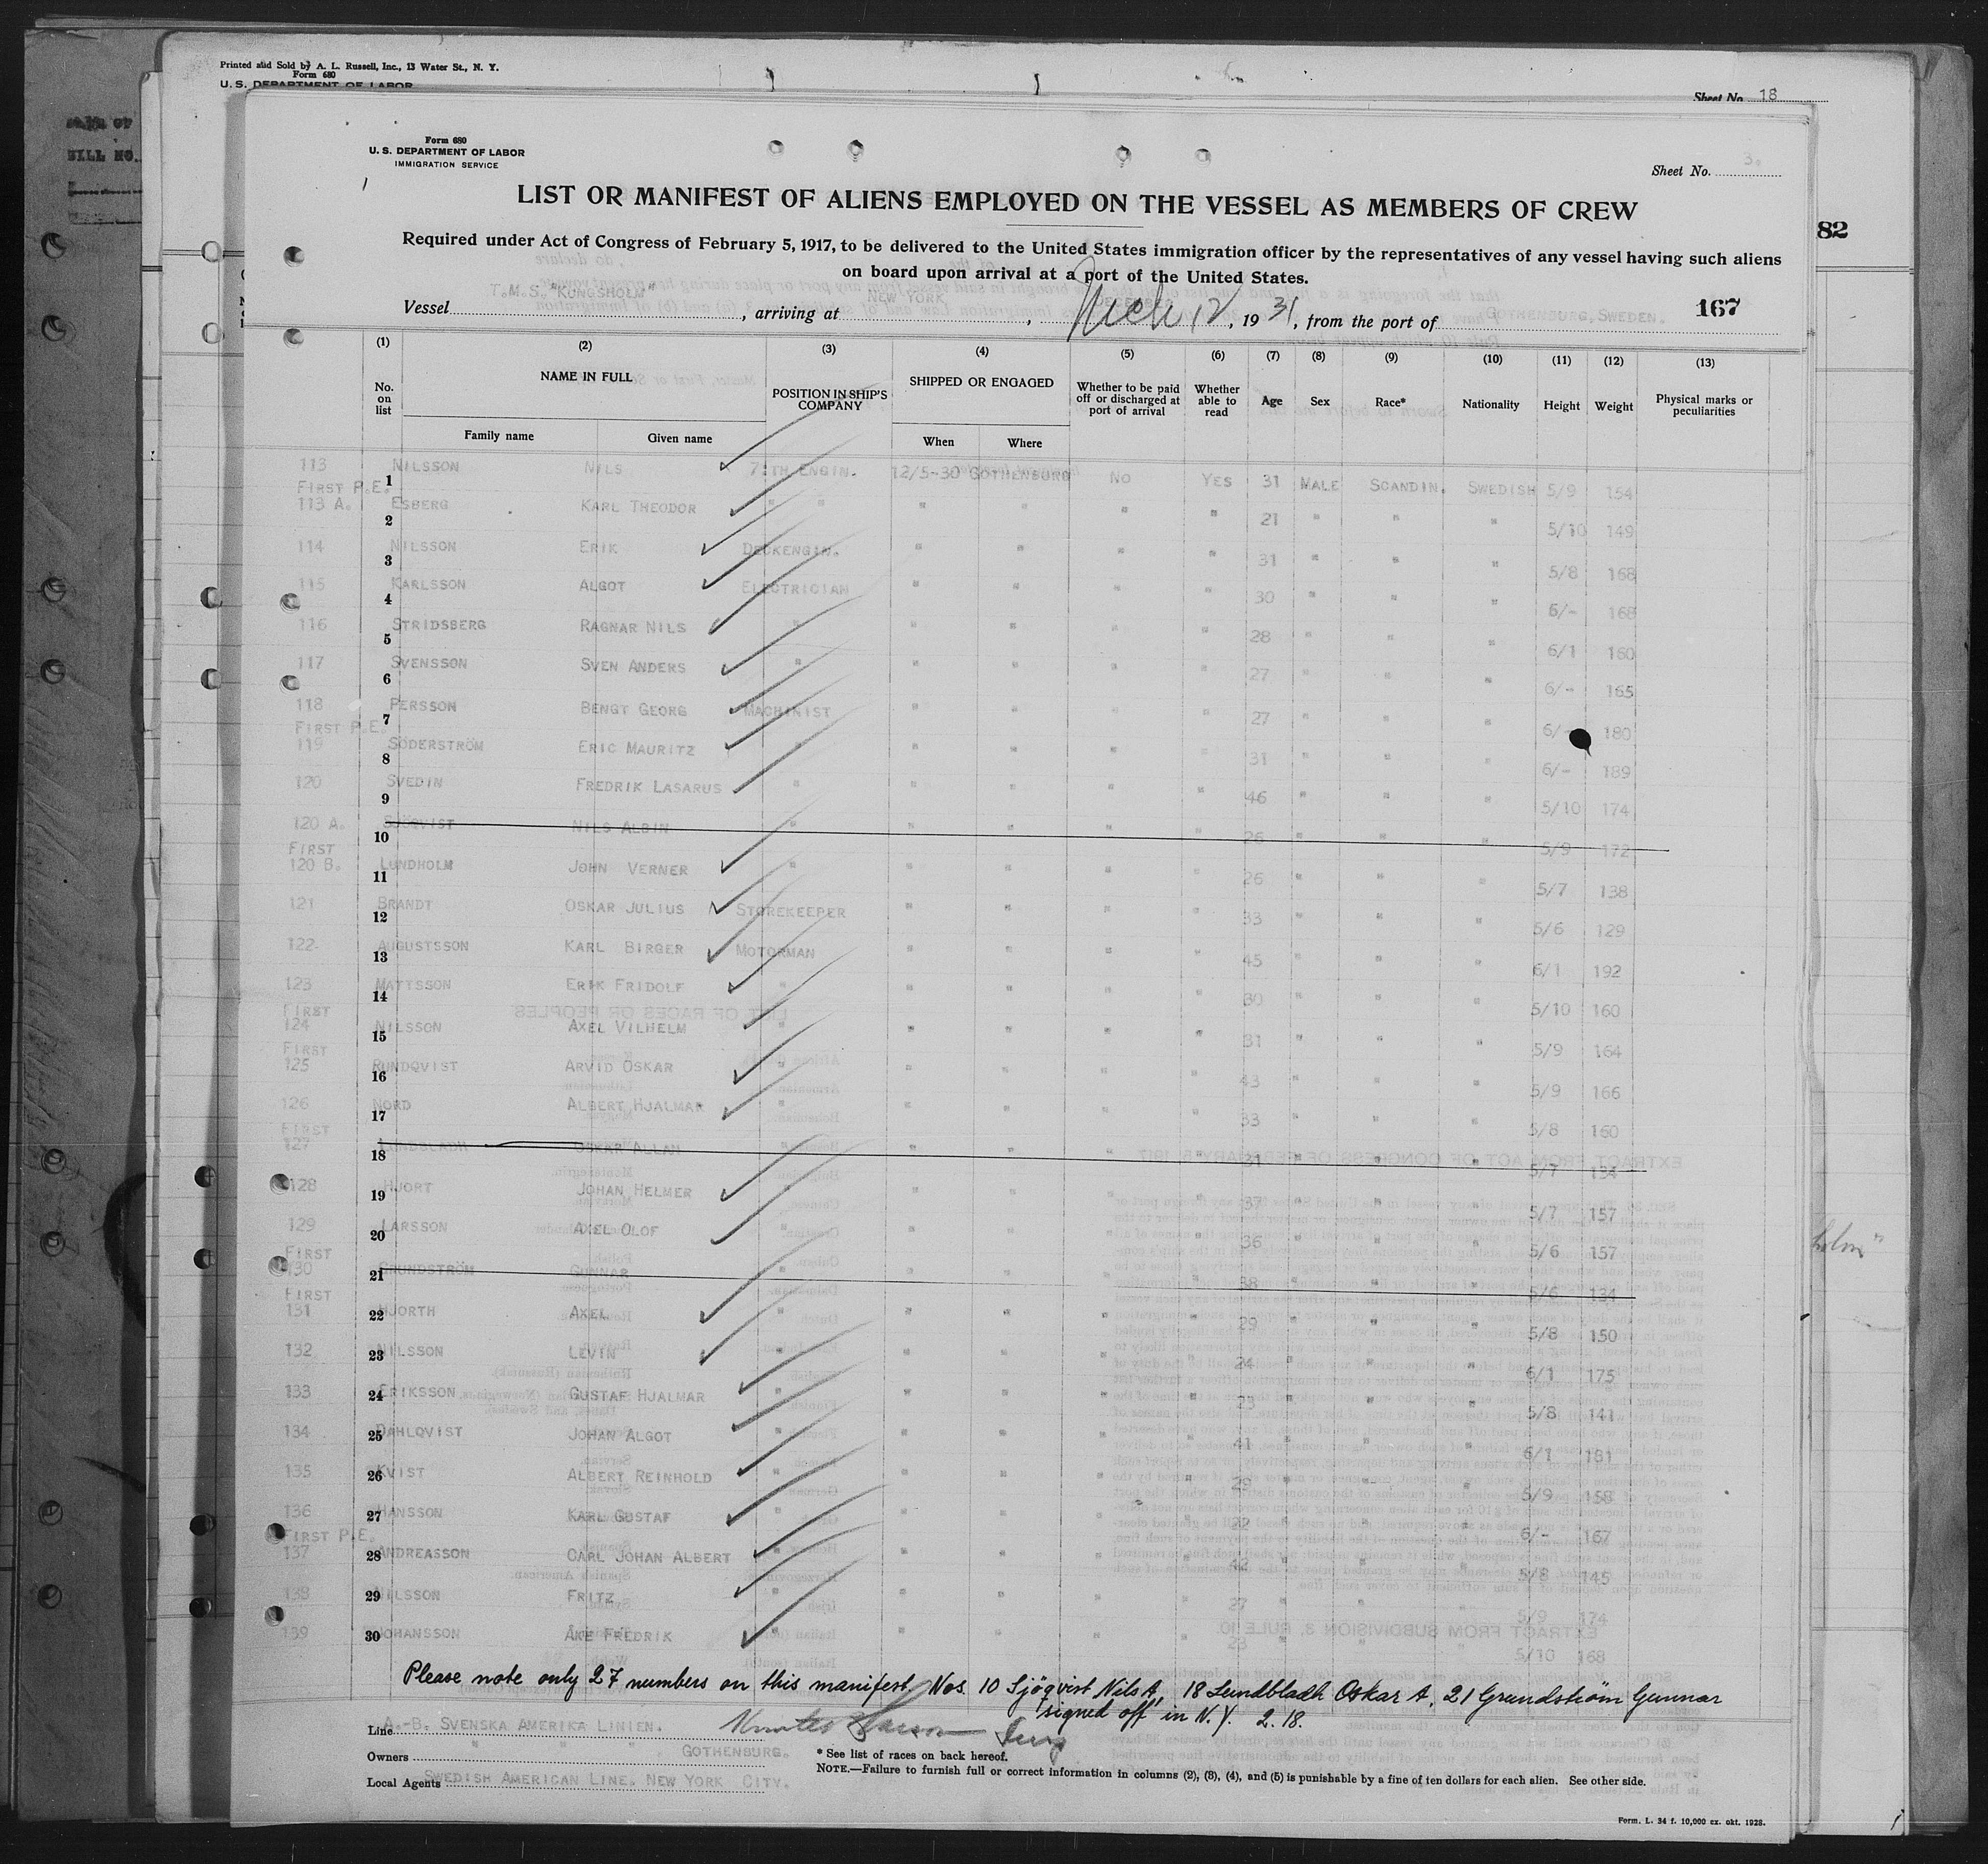 Printed and Sold by A. L. Russell, Inc., 13 Water St., N. Y.
Form 680
U. S. DEPARTMENT OF LABOR
Sheet No. 18
82
Form 680
U. S. DEPARTMENT OF LABOR
IMMIGRATION SERVICE
Sheet No. 3.
LIST OR MANIFEST OF ALIENS EMPLOYED ON THE VESSEL AS MEMBERS OF CREW
Required under Act of Congress of February 5, 1917, to be delivered to the United States immigration officer by the representatives of any vessel having such aliens
on board upon arrival at a port of the United States.
Vessel T.M.S. "KUNGSHOLM", arriving at NEW YORK, Mch 12, 1931, from the port of GOTHENBURG, SWEDEN. 167
(1) (2) (3) (4) (5) (6) (7) (8) (9) (10) (11) (12) (13)
No. on list NAME IN FULL POSITION IN SHIP'S COMPANY SHIPPED OR ENGAGED Whether to be paid off or discharged at port of arrival Whether able to read Age Sex Race* Nationality Height Weight Physical marks or peculiarities
Family name Given name When Where
113 1 NILSSON NILS 7:TH ENGIN. 12/5-30 GOTHENBURG NO YES 31 MALE SCANDIN. SWEDISH 5/9 154
FIRST P.E.
113 A. 2 ESBERG KARL THEODOR " " " " " " 21 " " " 5/10 149
114 3 NILSSON ERIK DECKENGIN. " " " " 31 " " " 5/8 168
115 4 KARLSSON ALGOT ELECTRICIAN " " " " 30 " " " 6/- 168
116 5 STRIDSBERG RAGNAR NILS " " " " " 28 " " " 6/1 160
117 6 SVENSSON SVEN ANDERS " " " " " 27 " " " 6/- 165
118 7 PERSSON BENGT GEORG MACHINIST " " " " 27 " " " 6/- 180
FIRST P.E.
119 8 SÖDERSTRÖM ERIC MAURITZ " " " " " 31 " " " 6/- 189
120 9 SVEDIN FREDRIK LASARUS " " " " " 46 " " " 5/10 174
120 A. 10 SJÖQVIST NILS ALBIN " " " " " 26 " " " 5/9 172
FIRST
120 B. 11 LUNDHOLM JOHN VERNER " " " " " 26 " " " 5/7 138
121 12 BRANDT OSKAR JULIUS STOREKEEPER " " " " 33 " " " 5/6 129
122 13 AUGUSTSSON KARL BIRGER MOTORMAN " " " " 45 " " " 6/1 192
123 14 MATTSSON ERIK FRIDOLF " " " " " 30 " " " 5/10 160
FIRST
124 15 NILSSON AXEL VILHELM " " " " " 31 " " " 5/9 164
FIRST
125 16 RUNDQVIST ARVID OSKAR " " " " " 43 " " " 5/9 166
126 17 NORD ALBERT HJALMAR " " " " " 33 " " " 5/8 160
FIRST
127 18 LUNDBLADH OSKAR ALLAN " " " " " 31 " " " 5/7 134
128 19 HJORT JOHAN HELMER " " " " " 37 " " " 5/7 157
129 20 LARSSON AXEL OLOF " " " " " 36 " " " 5/6 157
FIRST
130 21 GRUNDSTRÖM GUNNAR " " " " " 38 " " " 5/6 134
FIRST
131 22 HJORTH AXEL " " " " " 29 " " " 5/8 150
132 23 NILSSON LEVIN " " " " " 24 " " " 6/1 175
133 24 ERIKSSON GUSTAF HJALMAR " " " " " 23 " " " 5/8 141
134 25 DAHLQVIST JOHAN ALGOT " " " " " 41 " " " 6/1 181
135 26 KVIST ALBERT REINHOLD " " " " " 29 " " " 5/9 158
136 27 HANSSON KARL GUSTAF " " " " " 22 " " " 6/- 167
FIRST P.E.
137 28 ANDREASSON CARL JOHAN ALBERT " " " " " 42 " " " 5/8 145
138 29 NILSSON FRITZ " " " " " 27 " " " 5/9 174
139 30 JOHANSSON ÅKE FREDRIK " " " " " 23 " " " 5/10 168
Please note only 27 numbers on this manifest. Nos. 10 Sjöqvist Nils A, 18 Lundbladh Oskar A, 21 Grundström Gunnar
signed off in N.Y. 2.18.
Line A.-B. SVENSKA AMERIKA LINIEN.
Owners " " " GOTHENBURG.
Local Agents SWEDISH AMERICAN LINE. NEW YORK CITY.
* See list of races on back hereof.
NOTE.—Failure to furnish full or correct information in columns (2), (3), (4), and (5) is punishable by a fine of ten dollars for each alien. See other side.
Form. L. 34 f. 10,000 ex. okt. 1928.